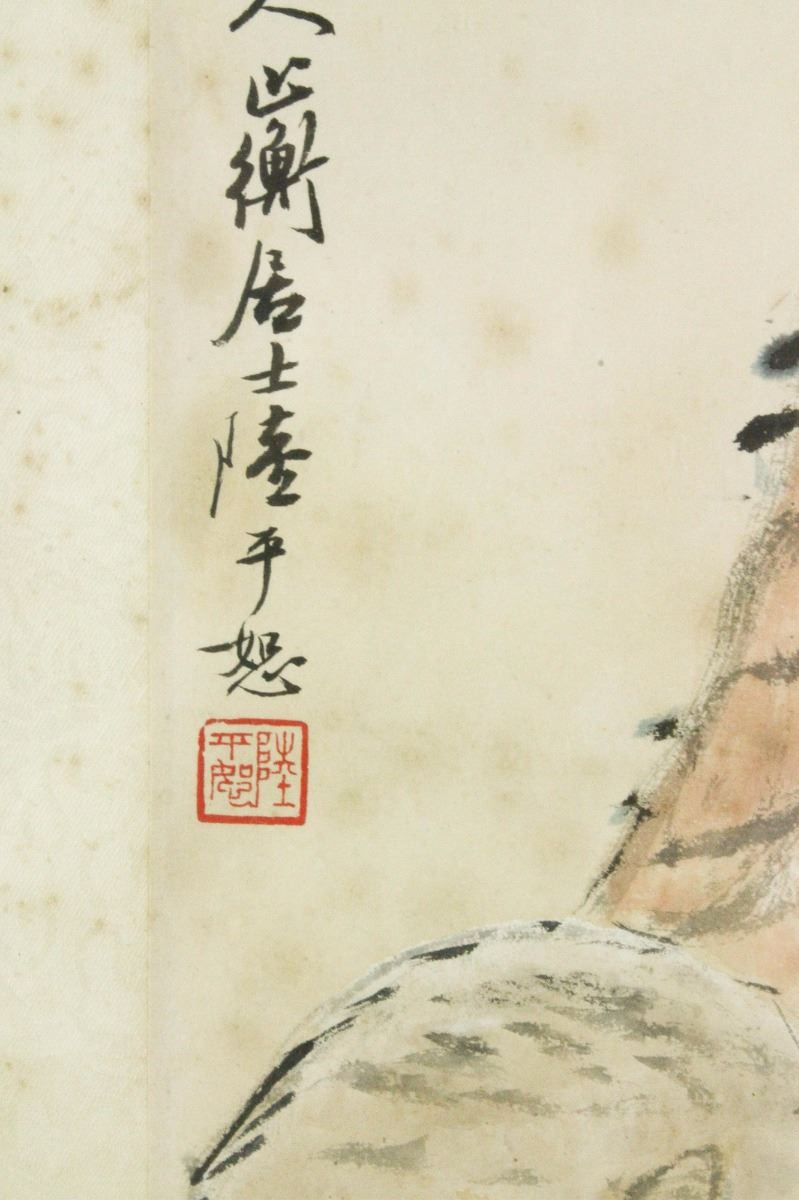 人止衡居士陸平恕
陸平恕